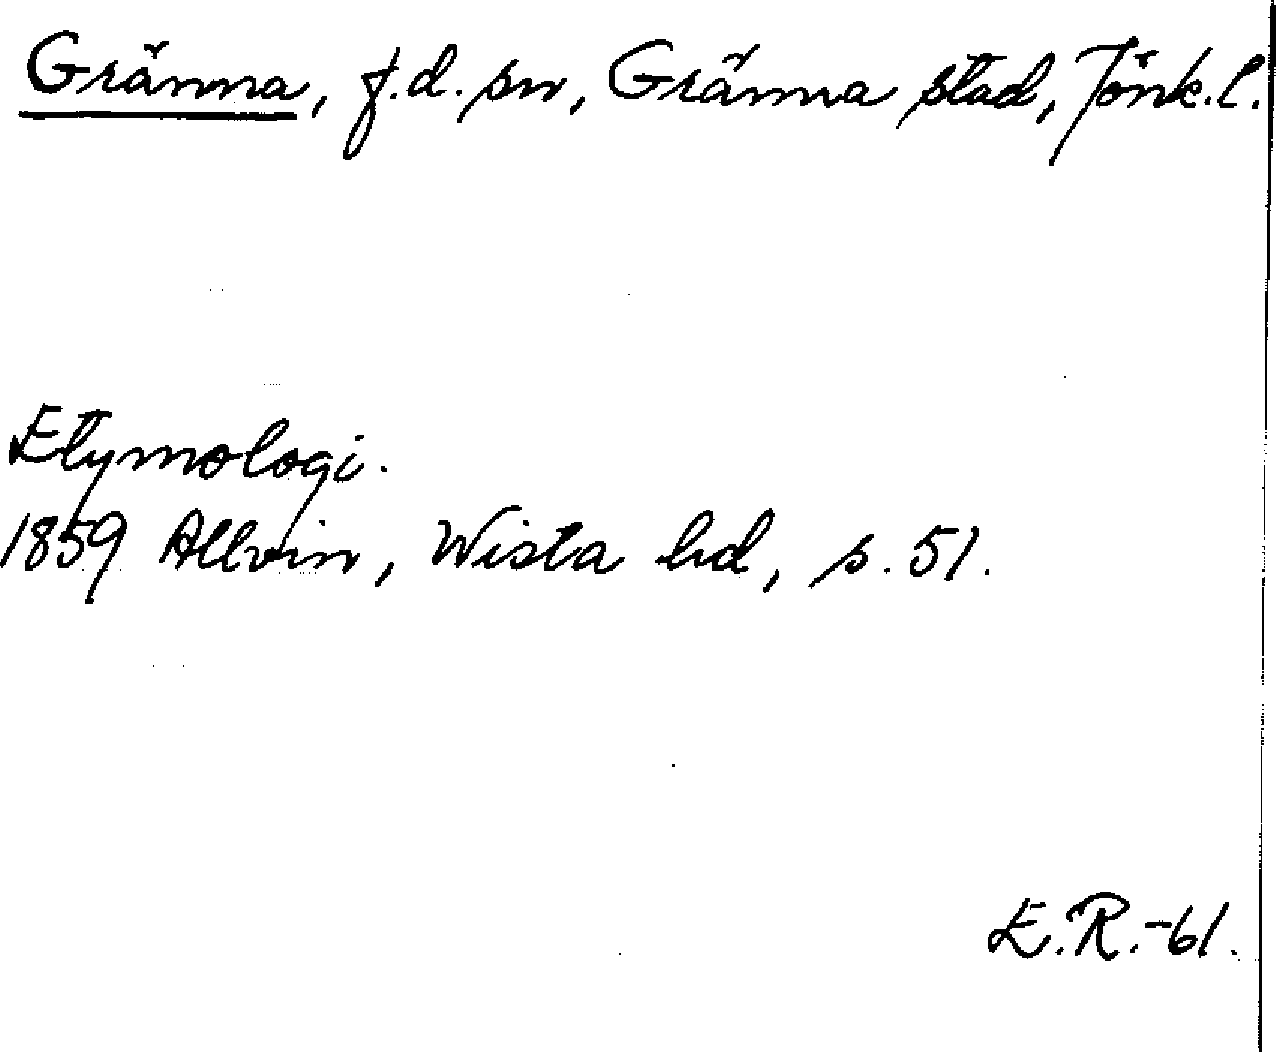 Gränna, f.d. sn, Gränna stad, Jönk.l.
Etymologi.
1859 Allvin, Wista hd, s. 51.
E.R.-61.